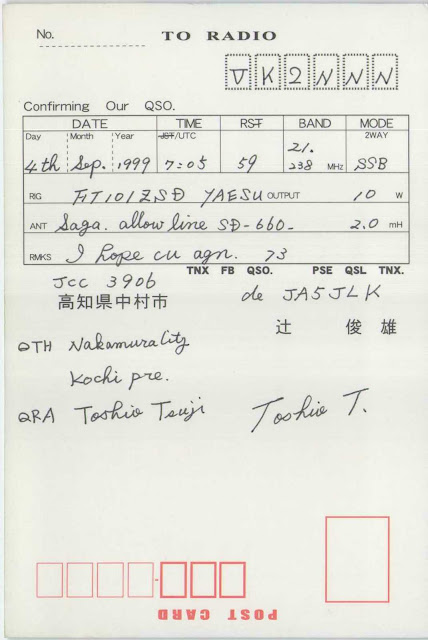 No.
TO RADIO
VK2NNN
Confirming Our QSO.
DATE TIME RST BAND MODE
Day Month Year JST/UTC 21. 2WAY
4th Sep. 1999 7:05 59 238 MHz SSB
RIG FT101ZSD YAESU OUTPUT 10 W
ANT Saga. allow line SD-660- 2.0 mH
RMKS I hope cu agn. 73
TNX FB QSO. PSE QSL TNX.
JCC 3906
de JA5JLK
高知県中村市
辻 俊雄
QTH Nakamura City
Kochi pre.
QRA Toshio Tsuji
Toshio T.
POST CARD